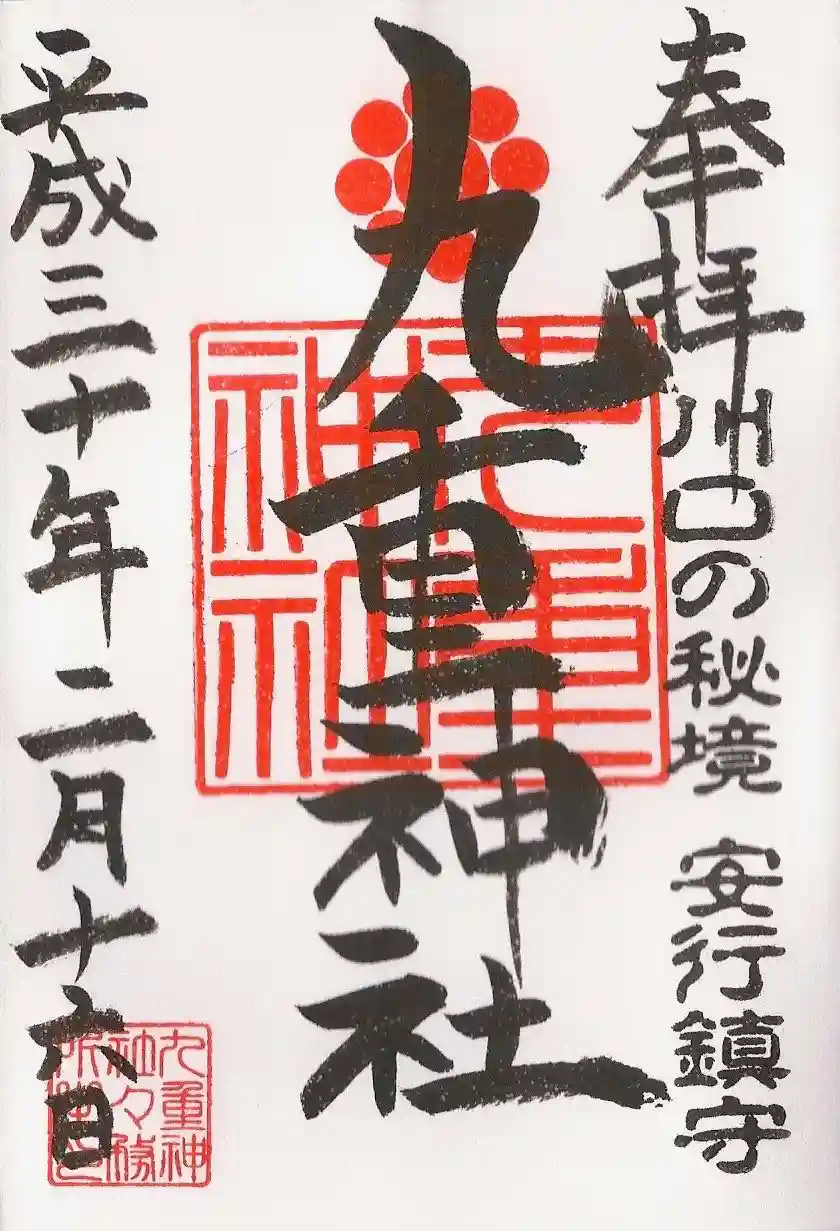 奉拝
川口の秘境 安行鎮守
九重神社
九重神社
平成三十年二月十六日
九重神
社々務